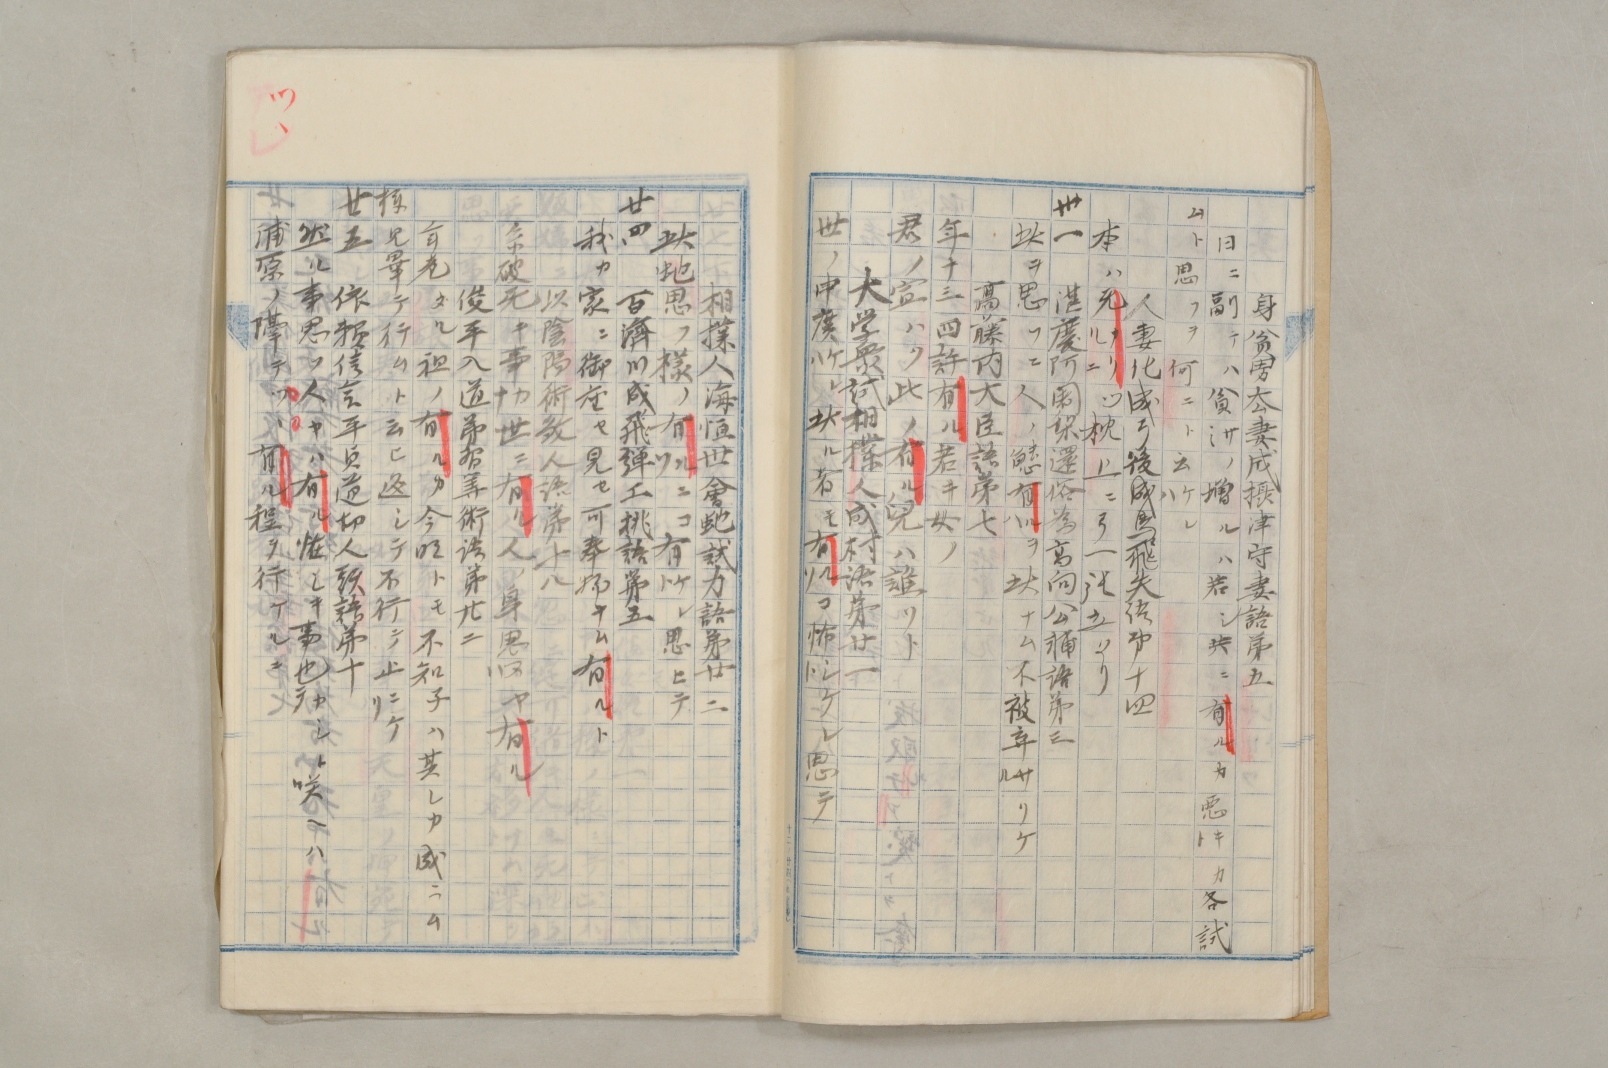 身貧男去妻成摂津守妻語第五
日ニ副テハ貪サノ増ルハ若シ共ニ有ルカ悪キカト各試
ムト思フヲ何ニト云ケレハ
人妻化成弓後成鳥飛失語第十四
本ハ死タルニ枕上ニ弓一張立タリ
卅一 湛慶阿闍梨還俗為高向公輔語第三
此ヲ思フニ人ノ魅有ルヲ此ナム不被弃サリケル
高藤内大臣語第七
年十三四許有ル若キ女ノ
君ノ宣ハク此ノ有ル児ハ誰ソト
大学衆試相撲人成村語第廿一
世ノ中広ケレハ此ル者モ有ルコソ怖シケレト思テ
相撲人海恒世会蛇試力語第廿二
此蛇思フ様ノ有ルニコソ有ケレト思ヒテ
廿四 百済川成飛弾工挑語第五
我カ家ニ御座セ見セ可奉物ナム有ルト
以陰陽術殺人語第十八
俊平入道弟習算術語第廿二
年老タル祖ノ有ルカ今明トモ不知子ハ其レカ成ニム
様見畢テ行ムト云ヒ返シテ不行シテ止ニケリ
廿五 依頼信言平貞道切人頭語第十
然ル事思フ人ヤハ有ル
浦原ノ
有ル程ヲ行ケルニ